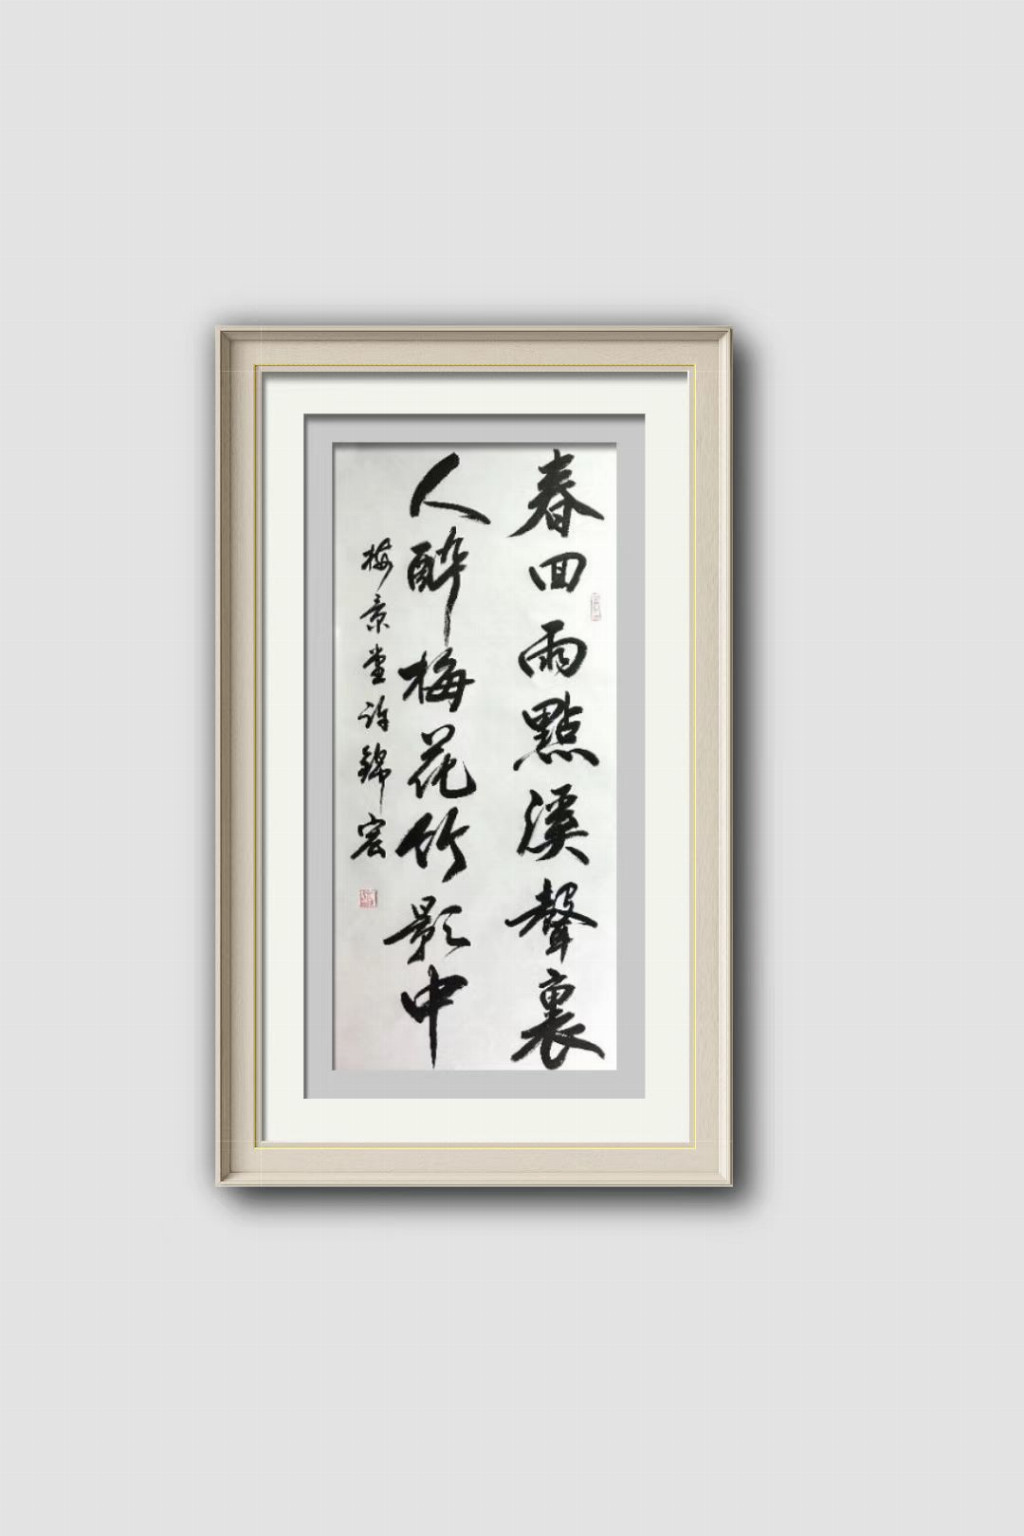 春回雨點溪聲裏
人醉梅花竹影中
梅景堂许錦宏